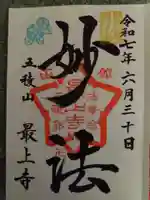 令和七年六月三十日
妙法
五稜山
最上寺